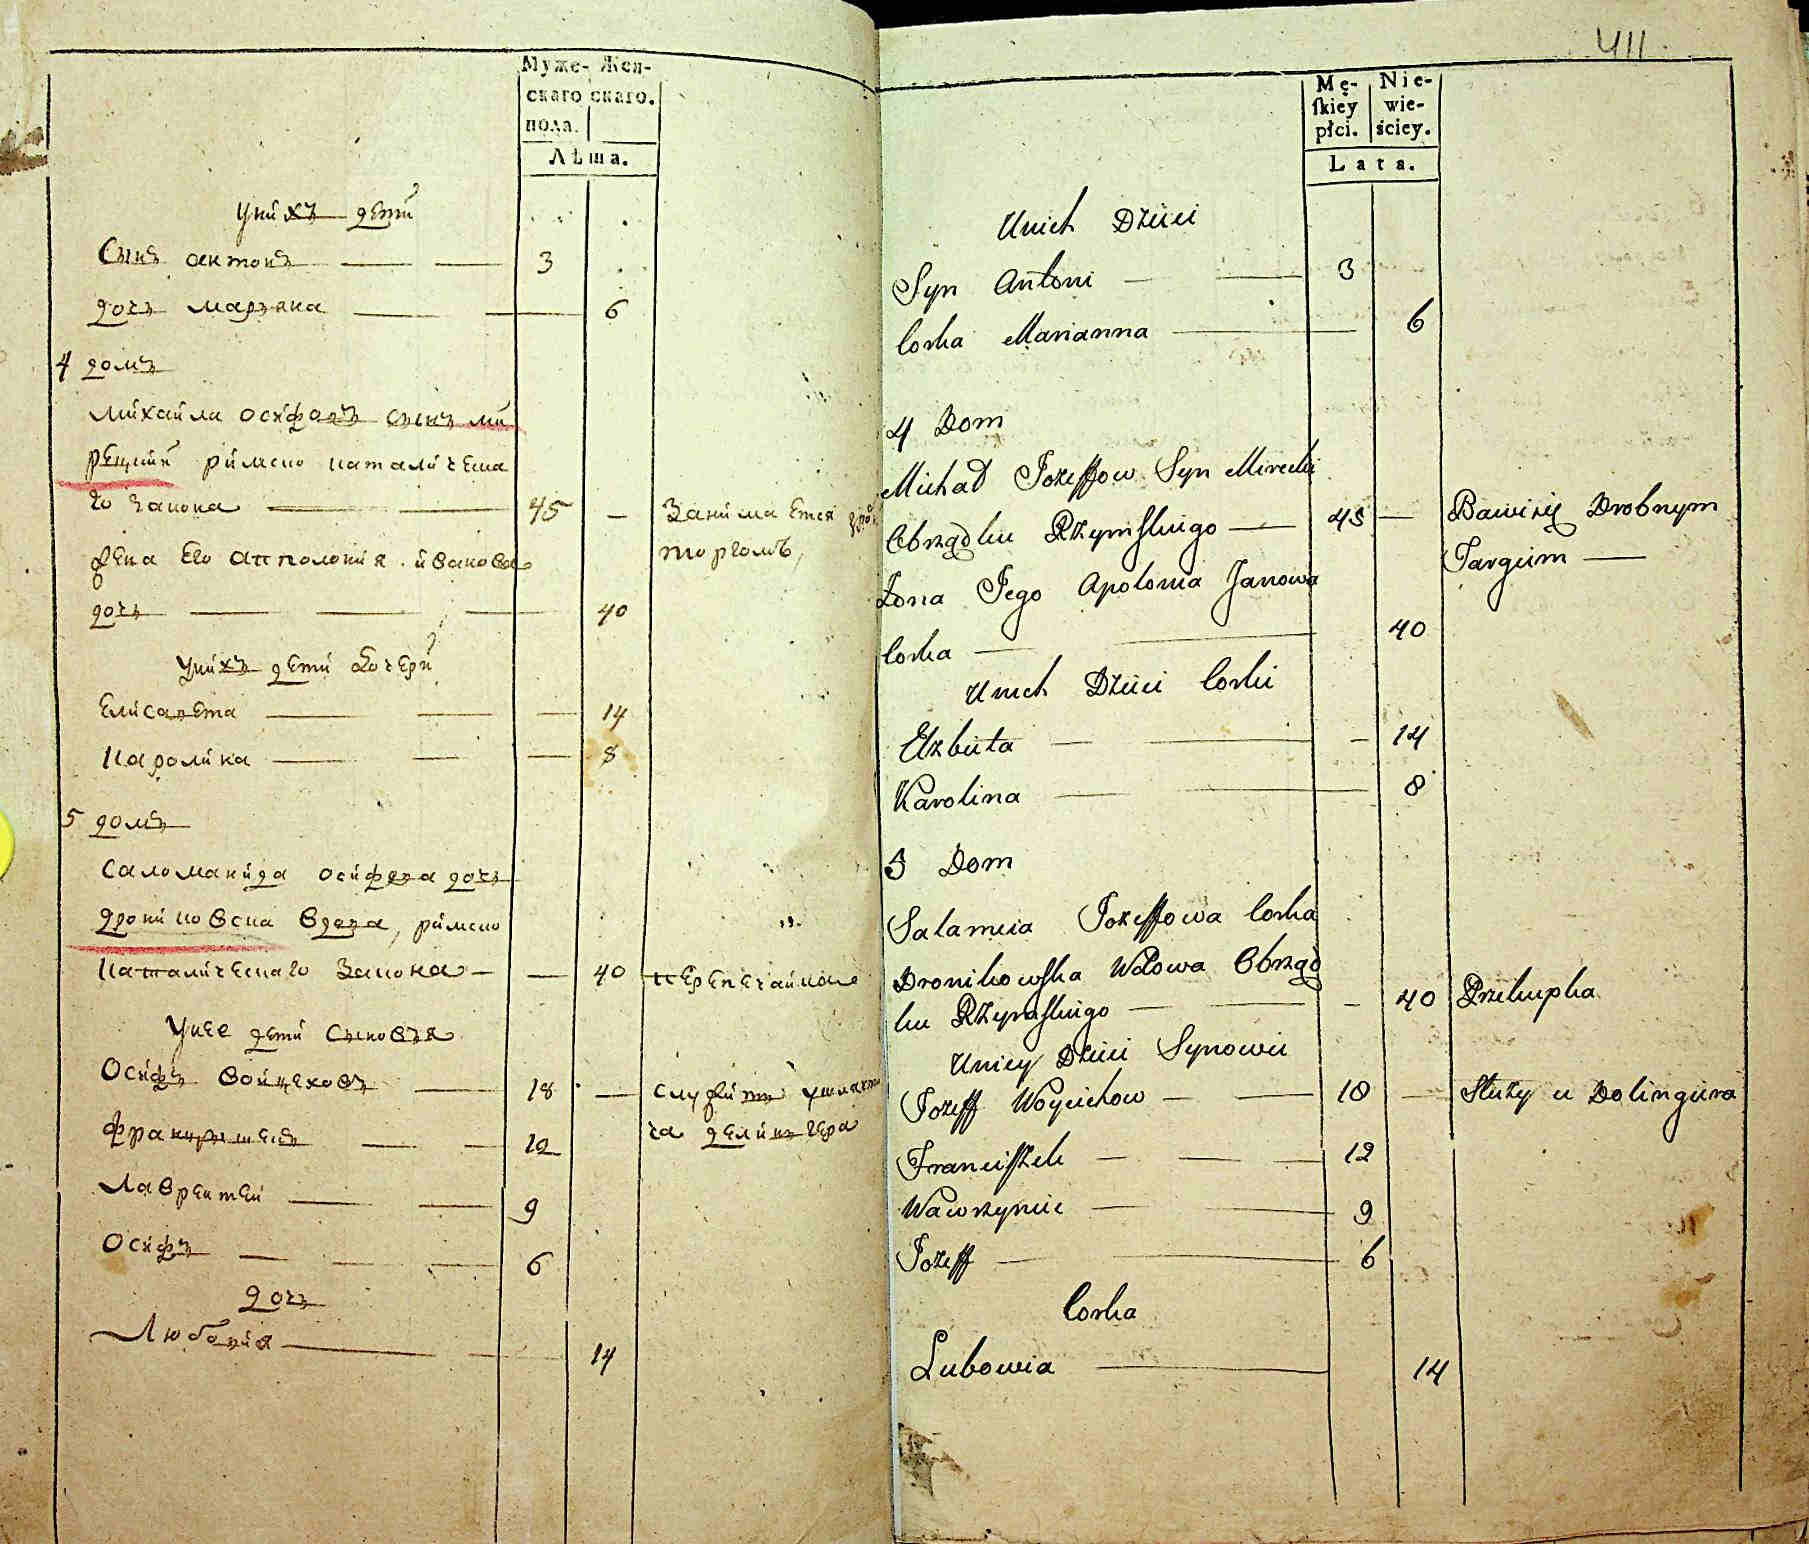 Муже- Жен-
скаго скаго.
пола.
Лѣта.
Униχъ дети
Сынъ антонъ 3
дочъ маръяна 6
4 домъ
михайла осифовъ сынъ ми
рецкий римско католическа
го закона 45 — Занимается дро
жена Его апполония ивановa
торгомъ,
дочъ 40
Унихъ дети дочери
Елисавета 14
Каролина — 8
5 домъ
Саломанида осифова дочъ
дрониковска вдова, римско
католическаго Закона — — 40 перепечайка
Унее дети сыновъя
Осифъ войцеховъ 18 — служитъ ушляхти
ча делингера
францышекъ 12
Лаврентей 9
Осифъ 6
дочъ
Любовия 14
411.
Mę- Nie-
ſkiey wie-
płci. ściey.
Lata.
Unich Dzieci
Syn Antoni 3
Corka Marianna 6
4 Dom
Michał Jozeffow Syn Mirecki
Obrządku Rzymſkiego — 45 — Bawi się Drobnym
Targiem —
Zona Jego Apolonia Janowa
Corka — 40
Unich Dzieci Corki
Elzbieta — 14
Karolina — 8
5 Dom
Salameia Jozeffowa Corka
Dronikowſka Wdowa Obrząd
ku Rzymſkiego — — 40 Przekupka
Uniey Dzieci Synowie
Jozeff Woyciechow — 18 — Służy u Dolingiera
Franciſzek — 12
Wawrzyniec — 9
Jozeff — 6
Corka
Lubowia — 14